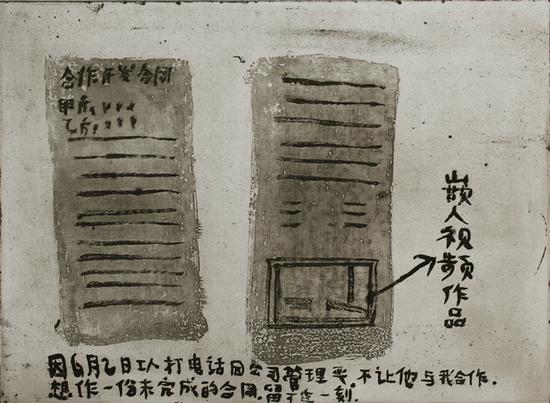 合作开发合同
甲方,...
乙方,...
嵌人视频作品
因6月2日工人打电话因公司管理严,不让他与我合作.
想作一份未完成的合同,留于这一刻.